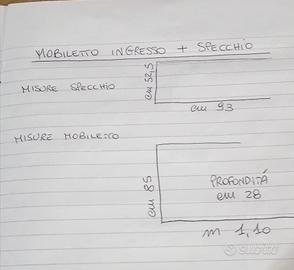 MOBILETTO INGRESSO + SPECCHIO
MISURE SPECCHIO
cm 52,5
cm 93
MISURE MOBILETTO
cm 85
PROFONDITÁ
cm 28
m 1,10
Subito